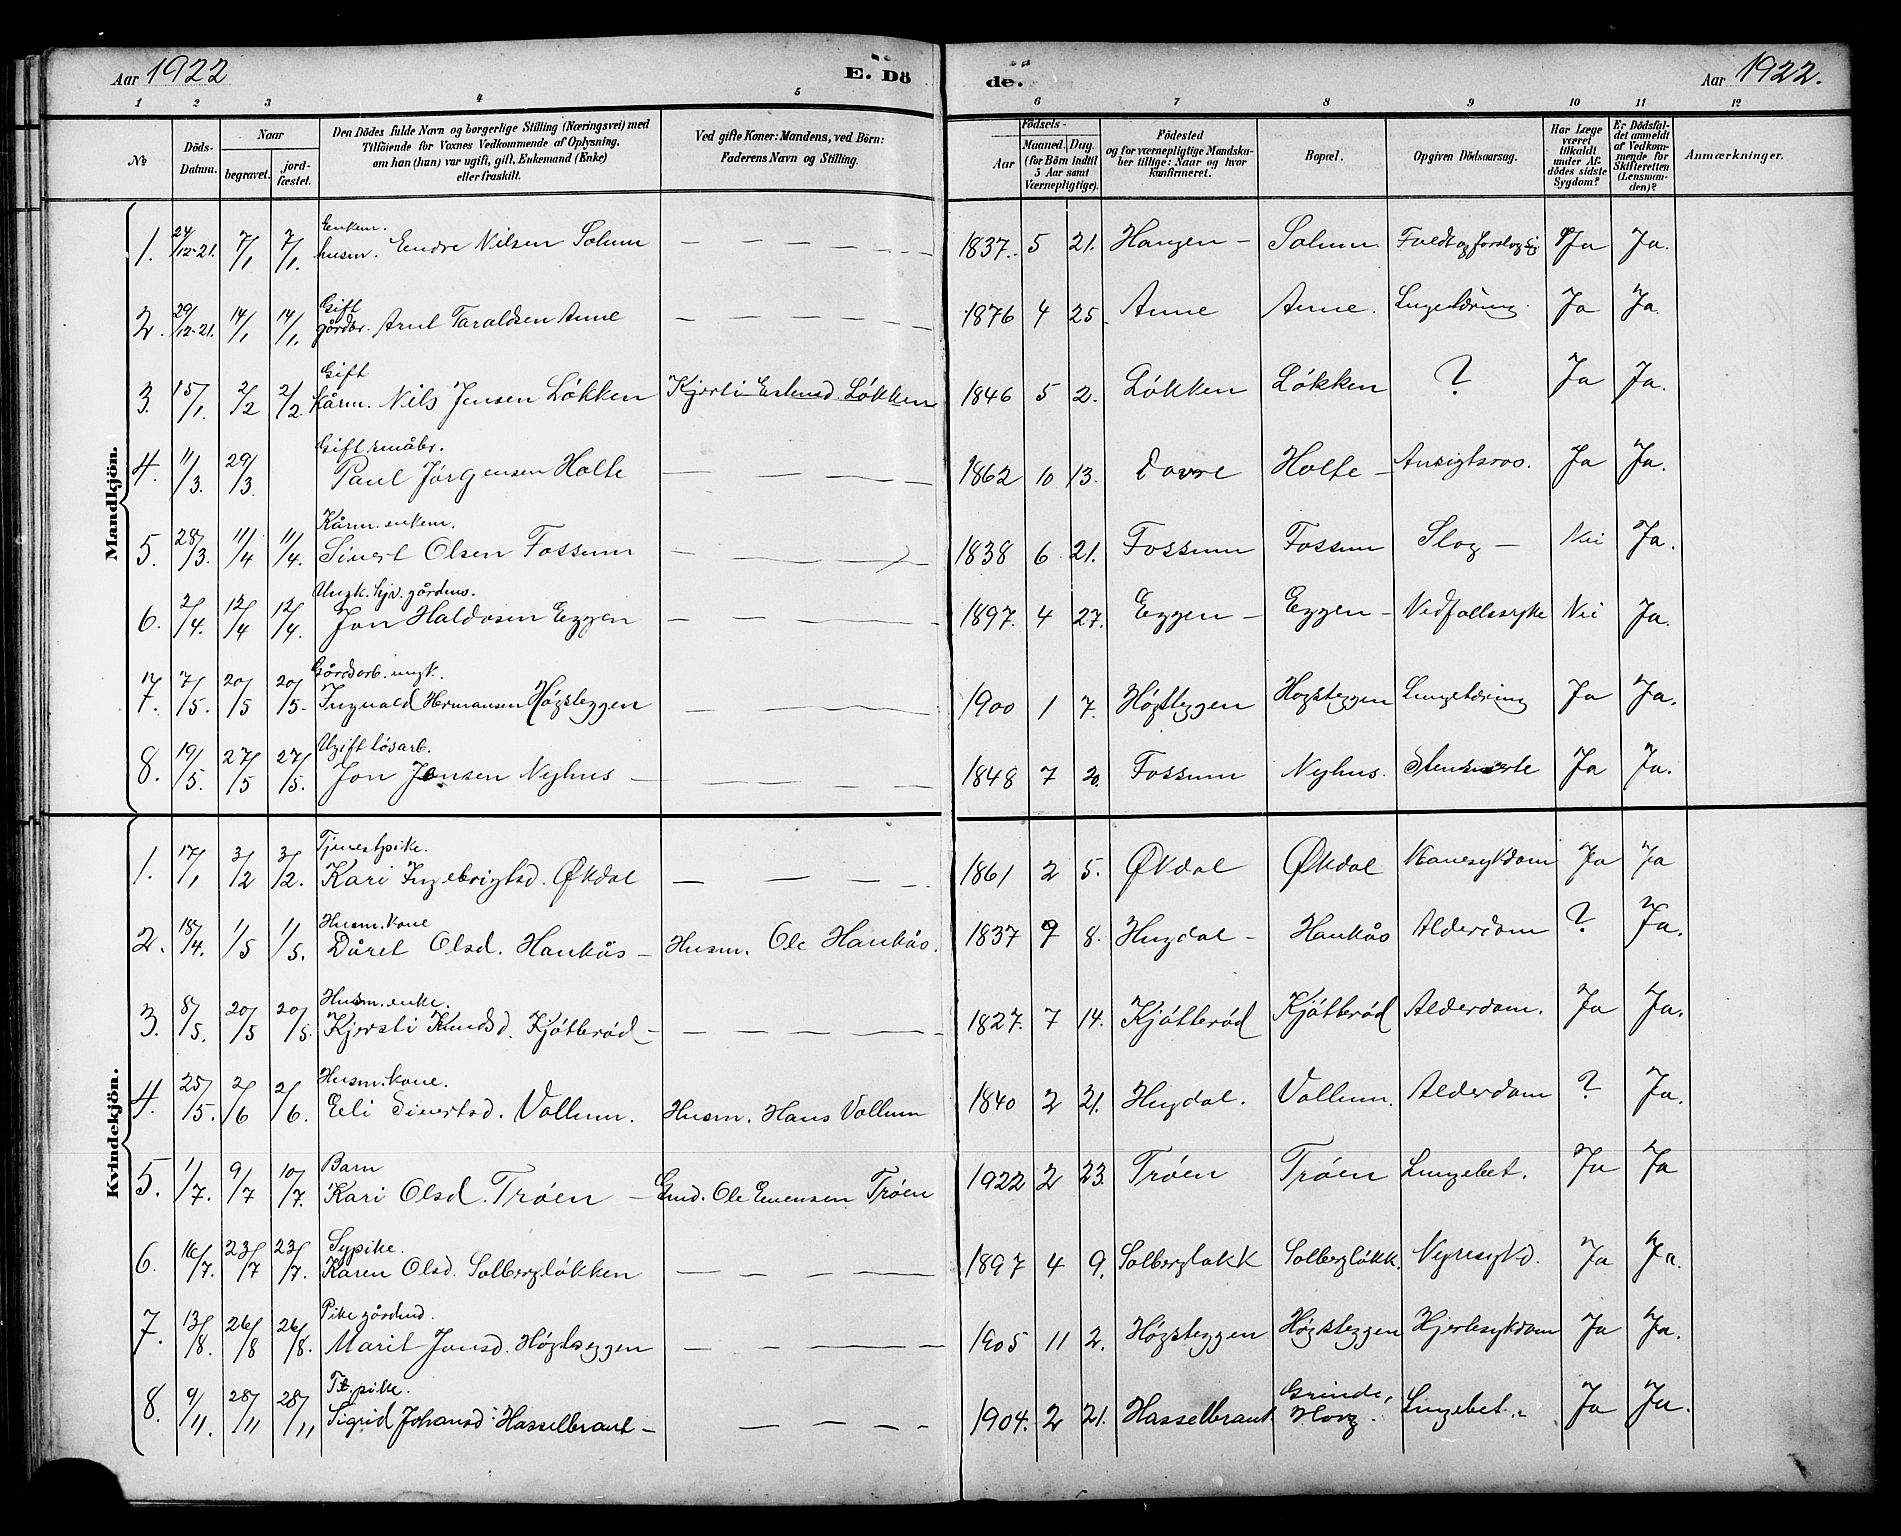 Aar 1922 E. Dö
de. Aar 1922.
1 2 3 4 5 6 7 8 9 10 11 12
No Döds-Datum. Naar begravet. jord-fæstet. Den Dödes fulde Navn og borgerlige Stilling (Næringsvei) med Tilföiende for Voxnes Vedkommende af Oplysning, om han (hun) var ugift, gift, Enkemand (Enke) eller fraskilt. Ved gifte Koner: Mandens, ved Börn: Faderens Navn og Stilling. Födsels- Aar Maaned. Dag. (for Börn indtil 5 Aar samt Værnepligtige). Födested og for værnepligtige Mandskaber tillige: Naar og hvor konfirmeret. Bopæl. Opgiven Dödsaarsag. Har Læge været tilkaldt under Afdödes sidste Sygdom? Er Dödsfaldet anmeldt af Vedkommende for Skifteretten (Lensmanden)? Anmærkninger.
Mandkjön.
Enkem.
1. 24/12-21. 7/1 7/1. husm. Endre Nilsen Solum — 1837. 5 21. Haugen — Solum Ja Ja.
Gift
2. 29/12-21. 14/1 14/1. gårdbr. Arnt Taraldsen Aune — 1876 4 25. Aune Aune. Lungetæring. Ja Ja.
Gift
3. 15/1. 2/2 2/2 kårm. Nils Jensen Løkken Kjersti Erlensd. Løkken 1846 5 2. Løkken Løkken ? Ja Ja.
Gift småbr.
4. 11/3. 29/3. Paul Jørgensen Holte — 1862 10 13. Dovre Holte — Ansigtsros. Ja Ja.
Kårm. enkem.
5. 28/3. 11/4 11/4. Sivert Olsen Fossum — 1838 6 21. Fossum Fossum Slag — Nei Ja.
Ungk. hjv. gårdms.
6. 2/4. 12/4 12/4. Jon Haldosen Eggen — 1897. 4 27. Eggen — Eggen — Nedfallssyke Nei Ja.
Gårdsarb. ungk.
7. 7/5. 20/5 20/5. Ingvald Hermansen Høgsteggen — 1900 1 7. Høgsteggen Høgsteggen Lungetæring Ja Ja.
Ugift løsarb.
8. 19/5. 27/5 27/5. Jon Jonsen Nyhus — 1848 7 20. Fossum Nyhus. Ja Ja.
Kvindekjön.
Tjenestpike.
1. 17/1 3/2 3/2. Kari Ingebrigtsd. Økdal — 1861 2 5. Økdal Økdal Ja Ja
Husm. kone
2. 18/4. 1/5 1/5. Dåret Olsd. Haukås — Husm. Ole Haukås. 1837 9 8. Hugdal — Haukås Alderdom ? Ja.
Husm. enke.
3. 8/5. 20/5 20/5. Kjersti Knudsd. Kjøtterød — 1827. 7 14. Kjøtterød Kjøtterød Alderdom. Ja Ja.
Husm. kone.
4. 25/5. 2/6 2/6. Eli Sivertsd. Vollum. Husm. Hans Vollum 1840 2 21. Hugdal. Vollum. Alderdom ? Ja.
Barn
5. 1/7. 9/7 10/7. Kari Olsd. Trøen — Gmd. Ole Evensen Trøen 1922 2 23. Trøen Trøen Lungebet. Ja Ja
Sypike.
6. 16/7. 23/7 23/7. Karen Olsd. Solbergløkken — 1897 4 9. Solbergløkk Solbergløkk. Nyresykd. Ja Ja.
Pike gårdmd.
7. 13/8. 26/8 26/8. Marit Jonsd. Høgsteggen — 1905 11 2. Høgsteggen Høgsteggen Hjertesykdom Ja Ja.
Tj. pike.
8. 9/11. 28/11 28/11 Sigrid Johansd. Hasselbrant — 1904. 2 21. Hasselbrant Grinde, Horg. Lungebet. Ja Ja.